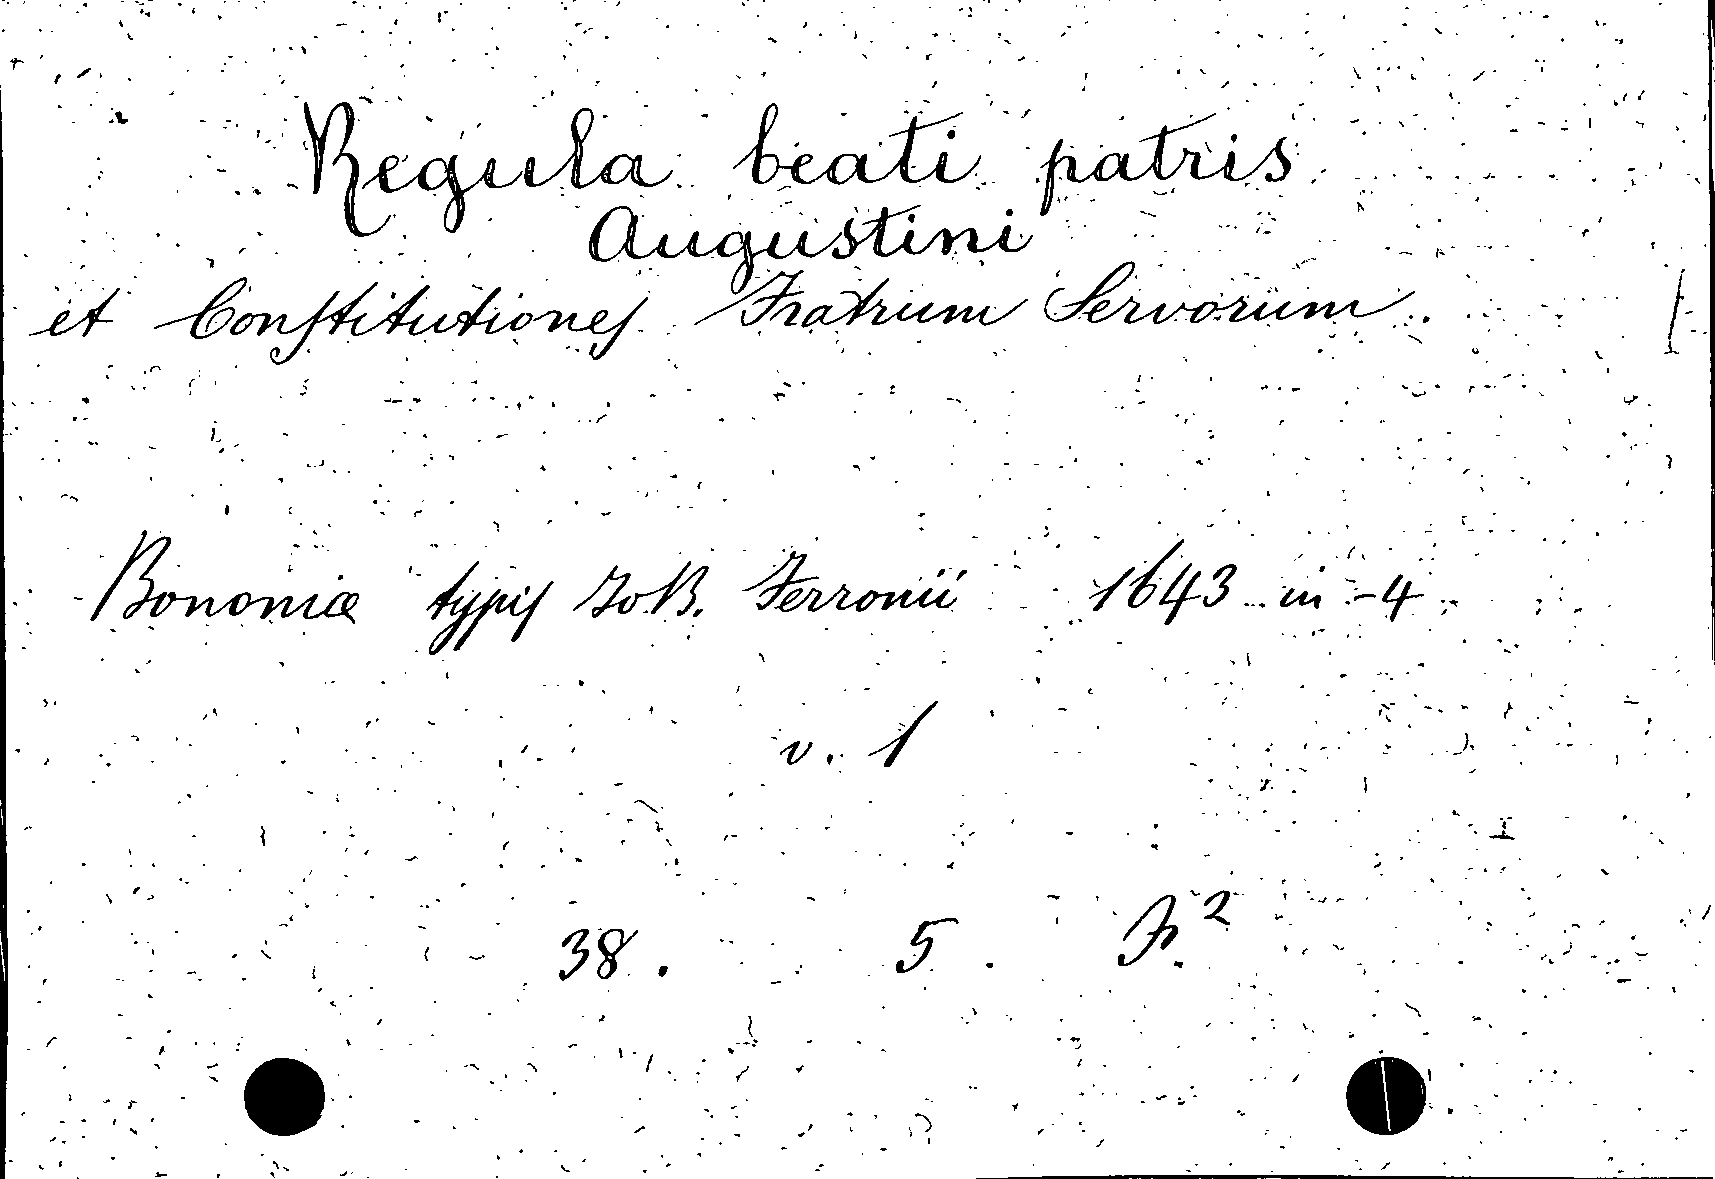 Regula beati patris
Augustini
et Conſtitutioneſ Fratrum Servorum.
Bononiæ typiſ Jo B. Ferronii 1643 in -4
v. 1
38. 5.